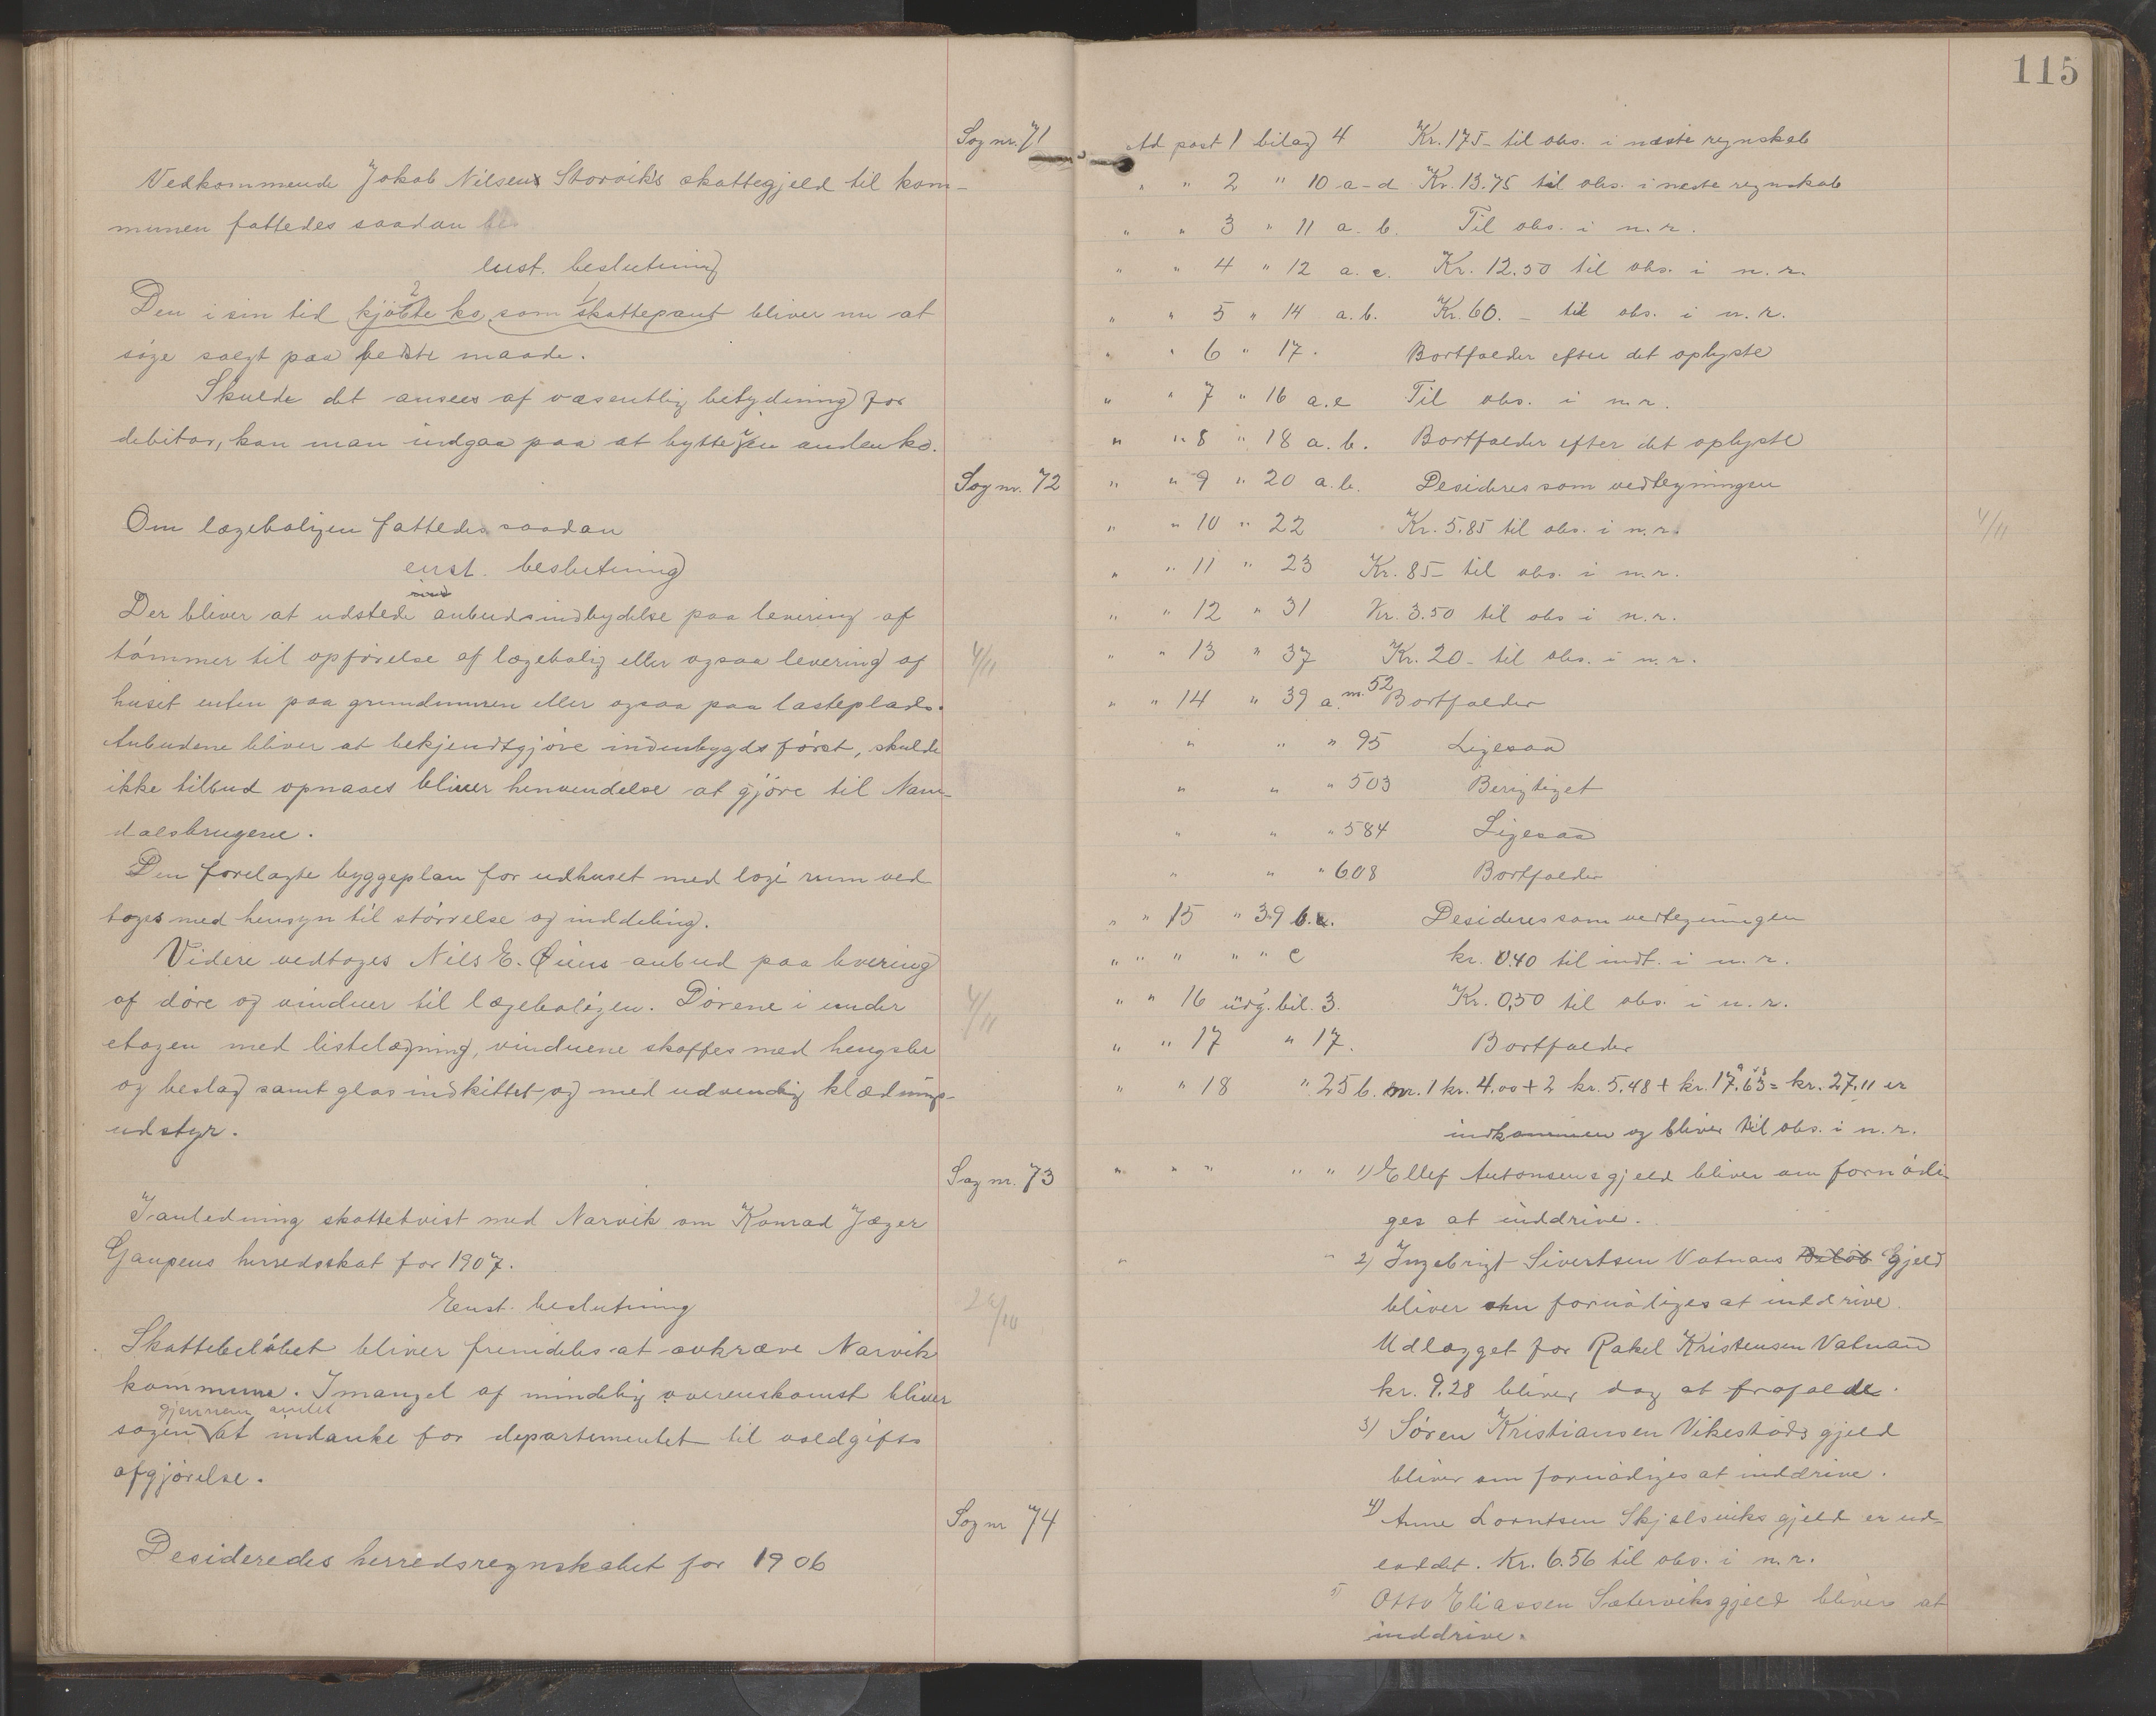 Sag nr. 71
Vedkommende Jokab Nilsens Storviks skattegjeld til kom-
munen fattedes saadan
enst. beslutning
2 1
Den i sin tid kjöbte ko som skattepant bliver nu at
söge solgt paa bedste maade.
Skulde det ansees af væsentlig betydning for
debitor, kan man indgaa paa at bytte en anden ko.
Sag nr. 72
Om lægeboligen fattedes saadan
enst. beslutning
Der bliver at udstede anbudsindbydelse paa levering af
tömmer til opförelse af lægebolig eller ogsaa levering af
4/11
huset enten paa grundmuren eller ogsaa paa lasteplads.
Anbudene bliver at bekjendtgjöre indenbygds först, skulde
ikke tilbud opnaaes bliver henvendelse at gjöre til Nam-
dalsbrugene.
Den forelagte byggeplan for udhuset med logi rum ved
toges med hensyn til störrelse og inddeling.
Videre vedtoges Nils E. Öiens anbud paa levering
af döre og vinduer til lægeboligen. Dörene i under
4/11
etagen med listelægning, vinduene skaffes med hengsler
og beslag samt glas indkittet og med udvendig klædnings-
udstyr.
Sag nr. 73
I anledning skattetvist med Narvik om Konrad Jæger
Gaupens herredsskat for 1907.
Enst. beslutning
26/10
Skattebelöbet bliver fremdeles at avkræve Narvik
kommune. I mangel af mindelig overenskomst bliver
gjennem amtet
sagen at indanke for departementet til voldgifts
afgjörelse.
Sag nr 74
Desideredes herredsregnskabet for 1906
115
Ad post 1 bilag 4 Kr. 175- til obs. i næste regnskab
" " 2 " 10 a-d Kr. 13.75 til obs. i neste regnskab
" " 3 " 11 a. b. Til obs. i n. r.
" " 4 " 12 a. c. Kr. 12.50 til obs. i n. r.
" " 5 " 14 a. b. Kr. 60. - til obs. i n. r.
" " 6 " 17. Bortfalder efter det oplyste
" " 7 " 16 a.e Til obs. i n. r.
" " 8 " 18 a. b. Bortfalder efter det oplyste
" " 9 " 20 a.b. Desideres som vedtegningen
" " 10 " 22 Kr. 5.85 til obs. i n. r.
4/11
" " 11 " 23 Kr. 85- til obs. i n. r.
" " 12 " 31 Kr. 3.50 til obs i n. r.
" " 13 " 37 Kr. 20- til obs. i n. r.
" " 14 " 39 a. nr. 52 Bortfalder
" " " 95 Ligesaa
" " " 503 Berigtiget
" " " 584 Ligesaa
" " " 608 Bortfalder
" " 15 " 39 b. Desideres som vedtegningen
" " " " " c kr. 0.40 til indt. i n. r.
" " 16 udg. bil. 3. Kr. 0,50 til obs. i n. r.
" " 17 " 17. Bortfalder
" " 18 " 25 b. nr. 1 kr. 4.00 + 2 kr. 5.48 + kr. 17.63 = kr. 27.11 er
indkommen og bliver til obs. i n. r.
" " " " " 1) Ellef Antonsens gjeld bliver om fornödi
ges at inddrive.
" " 2) Ingebrigt Sivertsen Vatnans Belöb Gjeld
bliver om fornödiges at inddrive.
Udlægget for Rakel Kristensen Vatnan
kr. 9.28 bliver dog at frafalde.
3) Sören Kristiansen Vikestads gjeld
bliver om fornödiges at inddrive.
4) Anne Lorntsen Skjelsviks gjeld er ud-
loddet. Kr. 6.56 til obs. i n. r.
5) Otto Eliassen Sæterviks gjeld bliver at
inddrive.